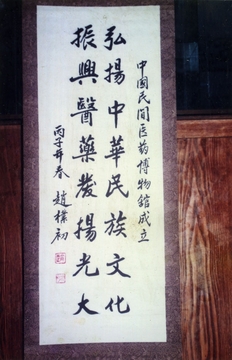 中國民間医药博物舘成立
弘揚中華民族文化
振興醫藥發揚光大
丙子年春 趙樸初